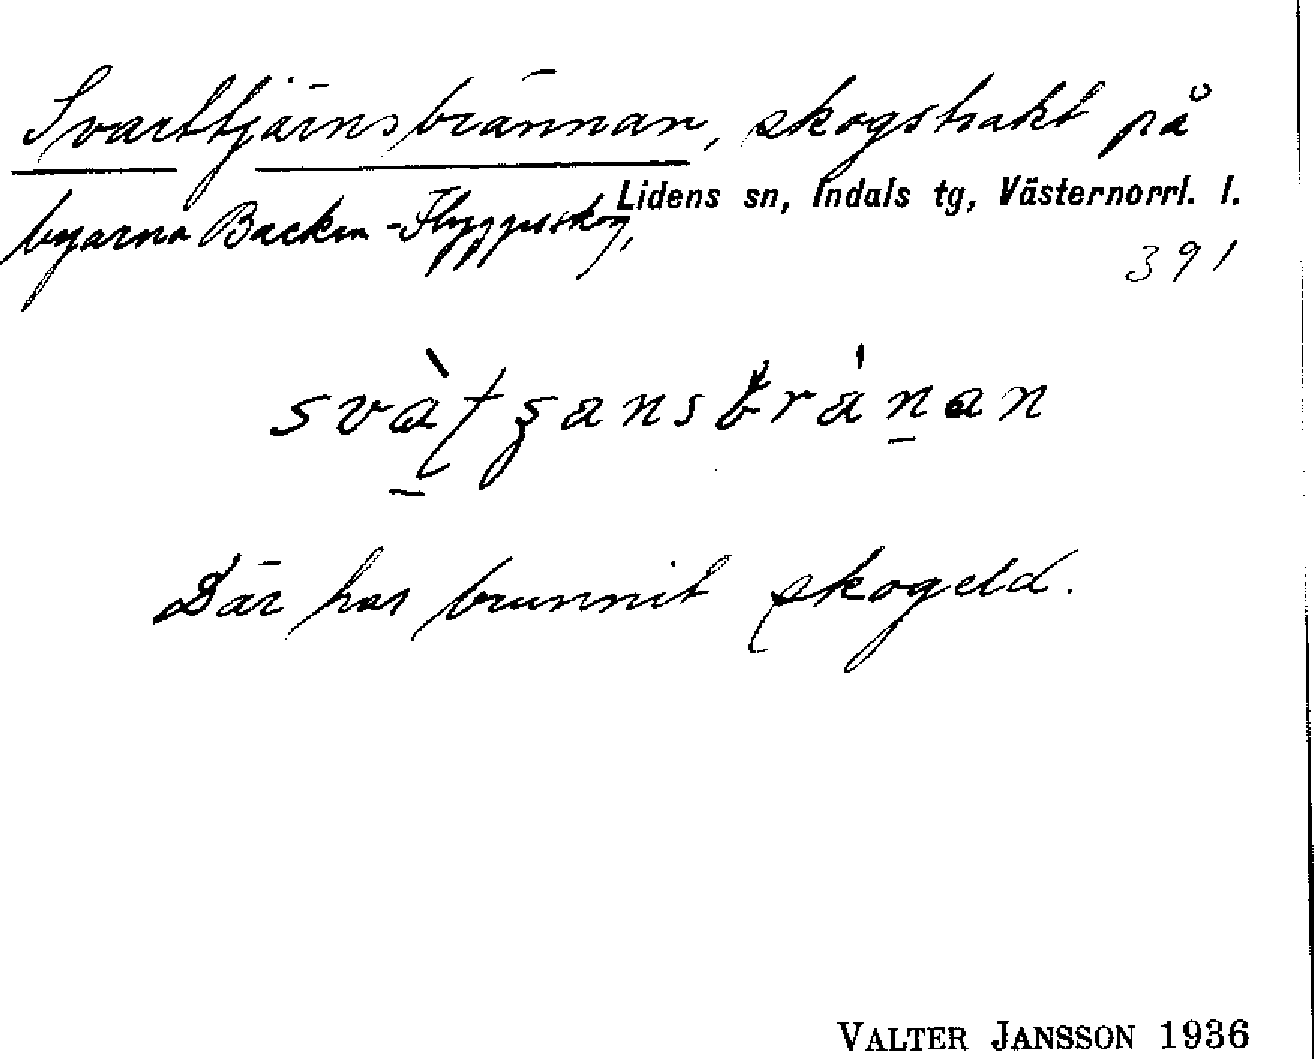 Svarttjärnsbrännan, skogstrakt på
byarna Backen-Flyggesskog,
Lidens sn, Indals tg, Västernorrl. l.
391
Där har brunnit skogeld.
VALTER JANSSON 1936